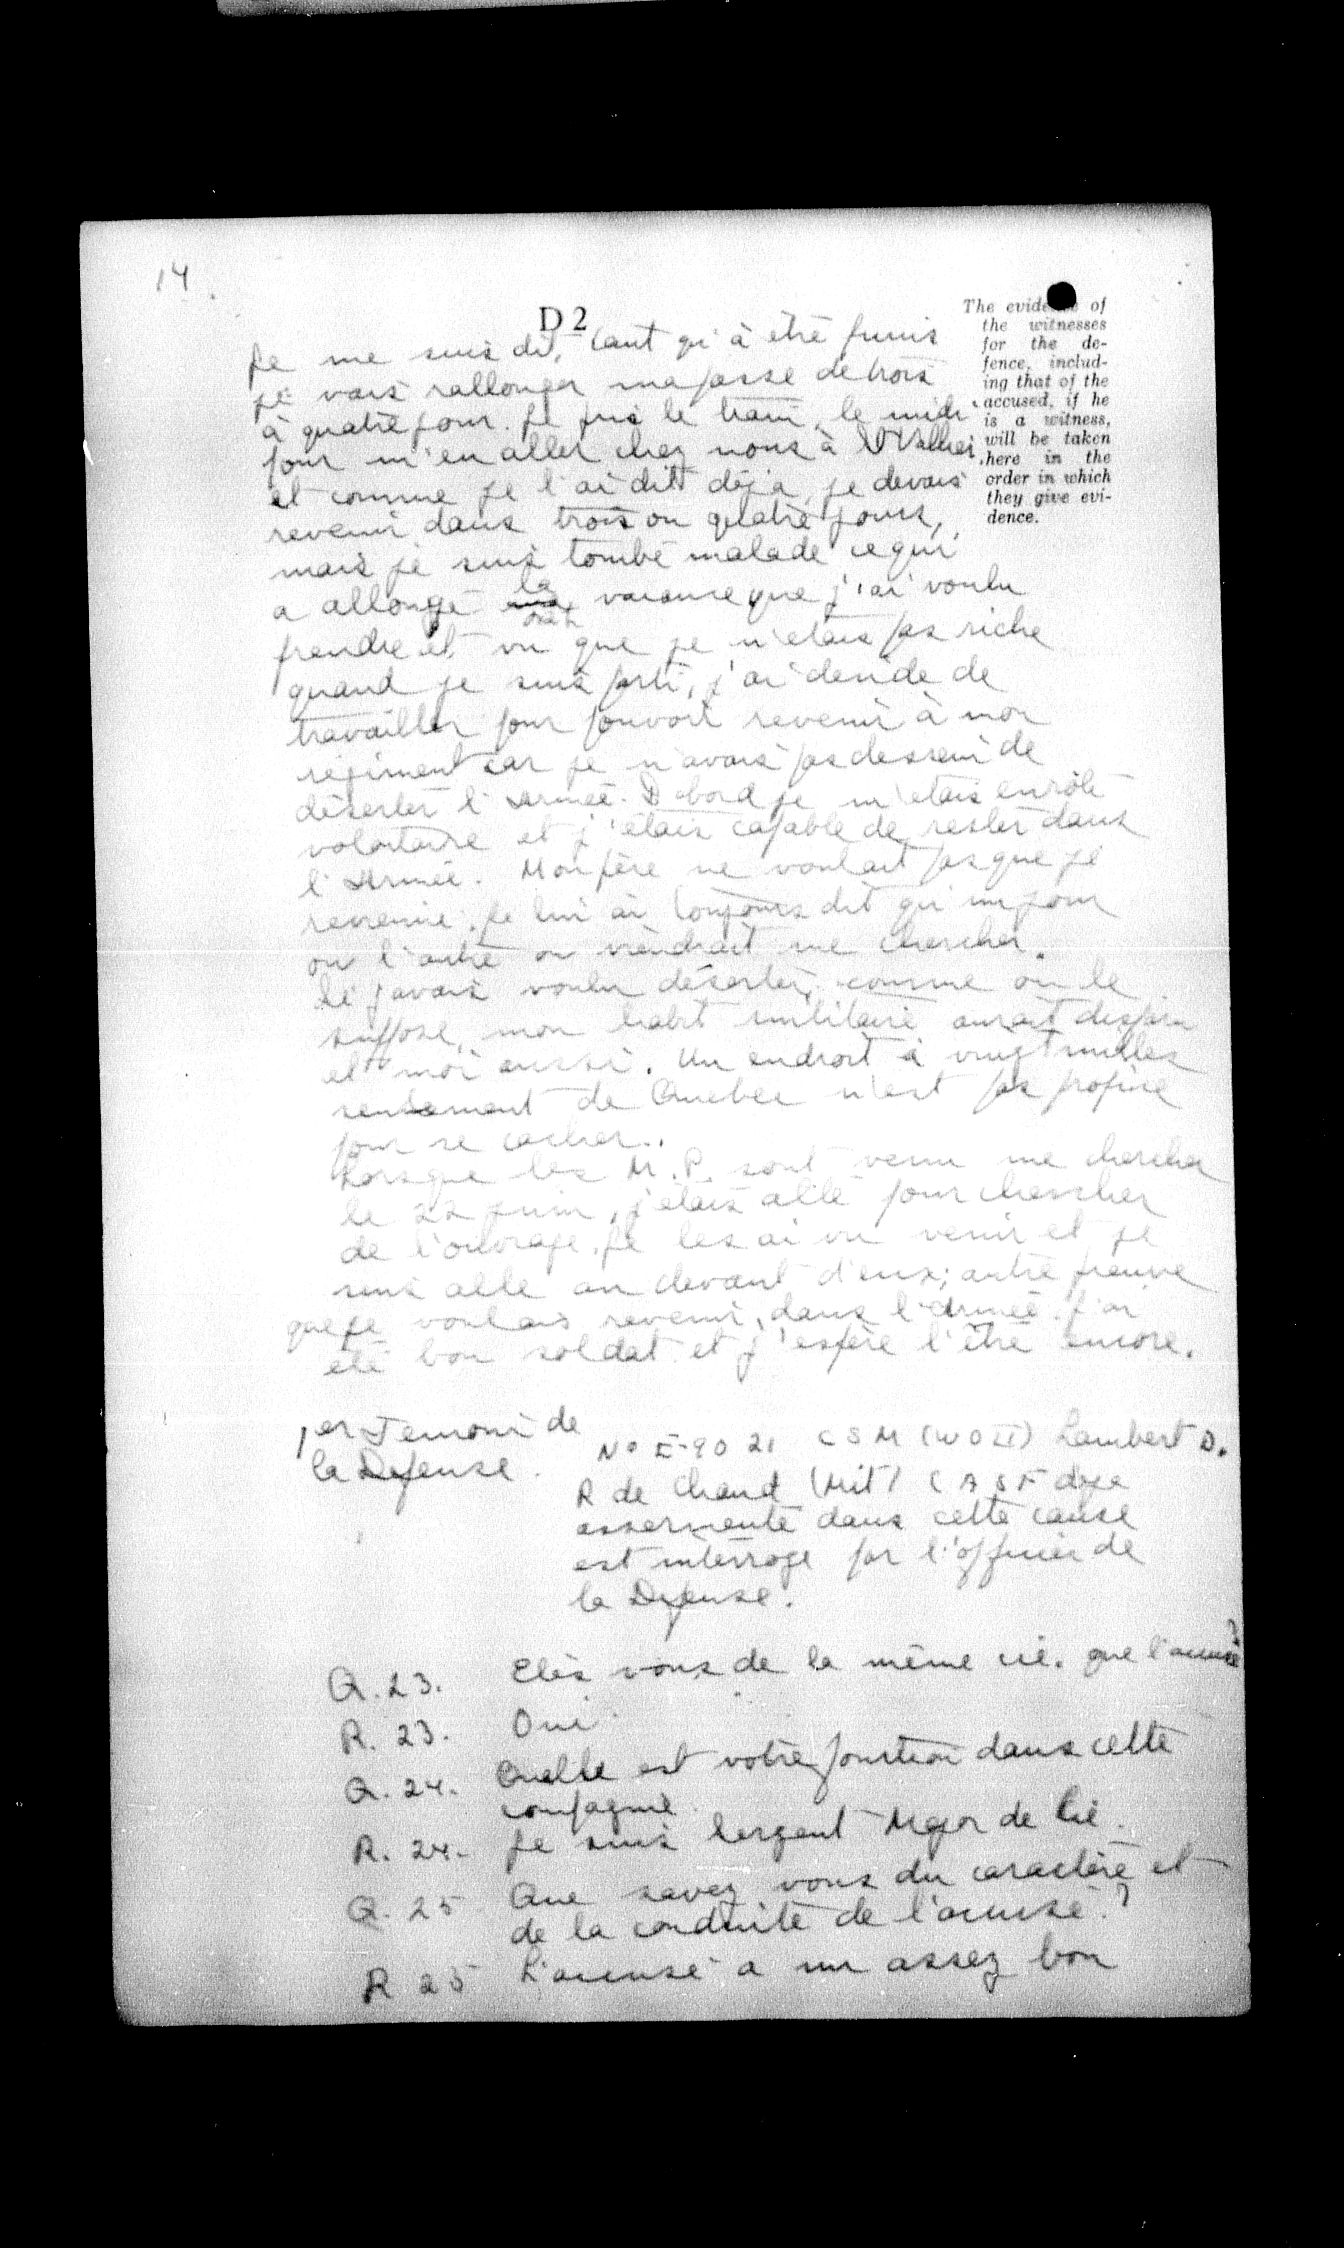 14
D 2
The evidence of
the witnesses
for the de-
fence, includ-
ing that of the
accused, if he
is a witness,
will be taken
here in the
order in which
they give evi-
dence.
Je me suis dit, tant qu'à être puni
je vais rallonger ma passe de trois
à quatre jour. Je pris le train, le midi
pour m'en aller chez nous à St Vallier
et comme je l'ai dit déjà, je devais
revenir dans trois ou quatre jours,
mais je suis tombé malade ce qui
a allongé la vacance que j'ai voulu
prendre et vu que je n'étais pas riche
quand je suis parti, j'ai décidé de
travailler pour pouvoir revenir à mon
régiment car je n'avais pas dessein de
déserter l'Armée. D'abord je m'étais enrôlé
volontaire et j'étais capable de rester dans
l'Armée. Mon père ne voulait pas que je
revienne. Je lui ai toujours dit qu'un jour
ou l'autre on viendrait me chercher.
Si j'avais voulu déserter, comme on le
suppose, mon habit militaire aurait disparu
et moi aussi. Un endroit à vingt milles
seulement de Quebec n'est pas propice
pour se cacher.
Lorsque les M.P. sont venu me chercher
le 22 juin, j'étais allé pour chercher
de l'ouvrage. Je les ai vu venir et je
suis allé au devant d'eux; autre preuve
que je voulais revenir dans l'Armée. J'ai
été bon soldat et j'espère l'être encore.
1er Temoin de
la Défense.
No E-9021 CSM (WO II) Lambert D.
R de Chaud (Mit) CASF deja
assermenté dans cette cause
est intérrogé par l'officier de
la Défense.
Q. 23. Etes vous de la même cie. que l'accusé?
R. 23. Oui
Q. 24. Quelle est votre fonction dans cette
compagnie
R. 24. Je suis Sergent Major de Cie.
Q. 25 Que savez vous du caractère et
de la conduite de l'accusé?
R 25 L'accusé a un assez bon